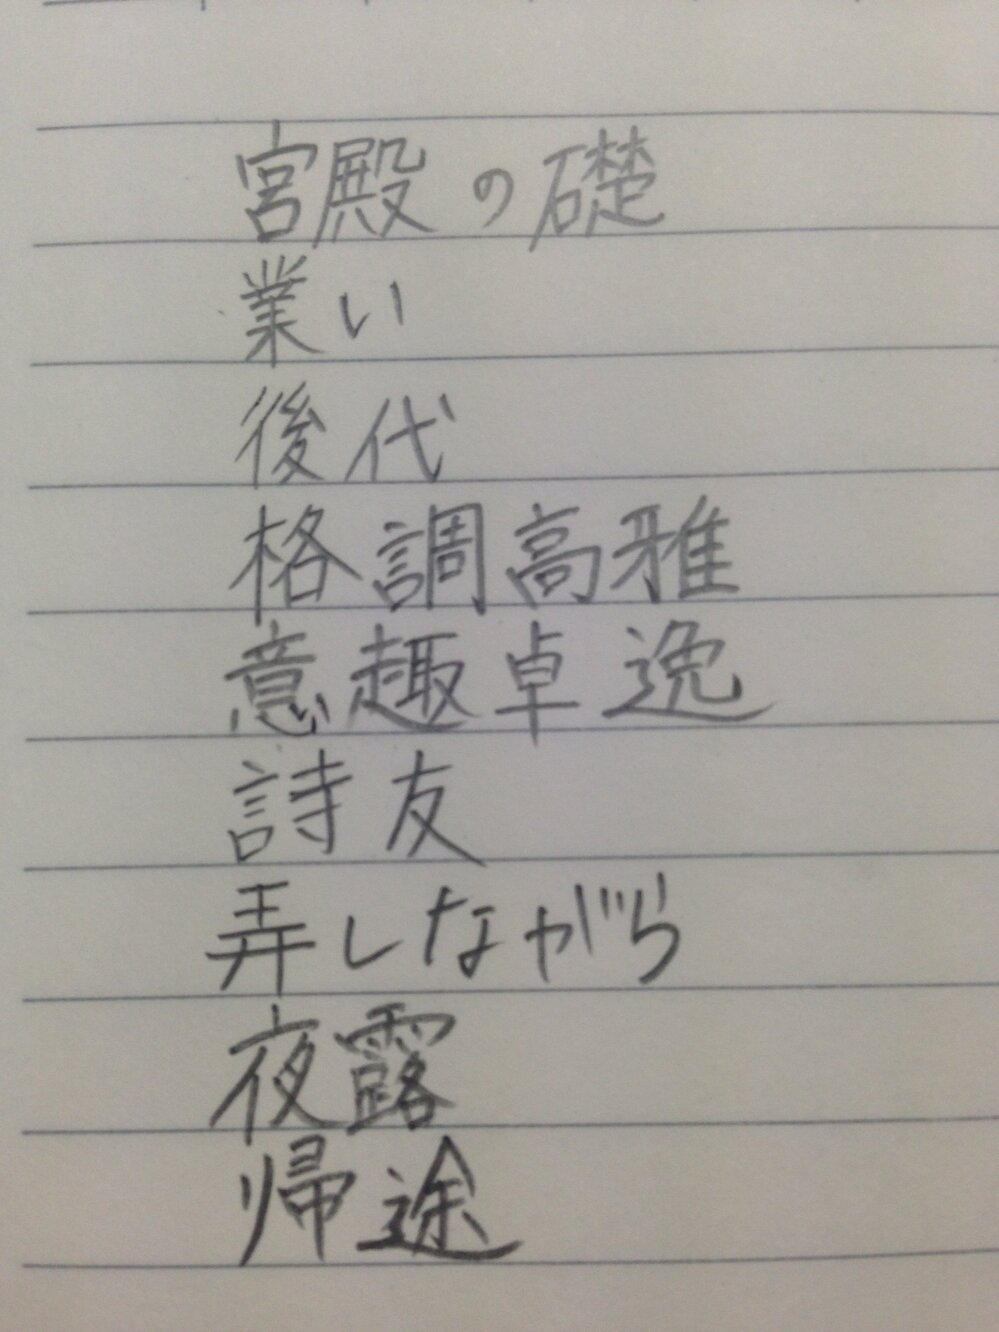 宮殿の礎
業い
後代
格調高雅
意趣卓逸
詩友
弄しながら
夜露
帰途